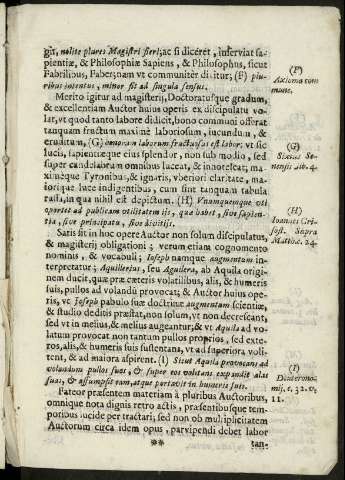 git, nolite plures Magistri fieri; ac si diceret, inserviat sa-
pientiæ, & Philosophiæ Sapiens, & Philosophus, sicut
Fabrilibus, Faber; nam vt communitèr dicitur; (F) plu-
ribus intentus, minor fit ad singula sensus.
(F)
Axioma com
mune.
Merito igitur ad magisterij, Doctoratusque gradum,
& excellentiam Auctor huius operis ex discipulatu vo-
lat, vt quod tanto labore didicit, bono communi offerat
tanquam fructum maximè laboriosum, iucundum, &
eruditum, (G) omnium laborum fructuosus est labor: vt sic
lucis, sapientiæque eius splendor, non sub modio, sed
super candelabrum omnibus luceat, & innotescat; ma-
ximèque Tyronibus, & ignaris, vberiori claritate, ma-
iorique luce indigentibus, cum sint tanquam tabula
rasa, in qua nihil est depictum. (H) Vnumquemque oti
oportet ad publicam vtilitatem ijs, quæ habet, sive sapien-
tia, sive principatu, sive divitijs.
(G)
Sixtus Se-
nensis lib. 4.
(H)
Ioannes Cri-
sost. Supra
Matthæ. 24.
Satis sit in hoc opere Auctor non solum discipulatus,
& magisterij obligationi; verum etiam cognomento
nominis, & vocabuli; Ioseph namque augmentum in-
terpretatur; Aquillerius, seu Aguilera, ab Aquila origi-
nem ducit, quæ præ cæteris volatilibus, alis, & humeris
suis, pullos ad volandú provocat; & Auctor huius ope-
ris, vt Ioseph pabulo suæ doctrinæ augmentum scientiæ,
& studio deditis præstat, non solum, vt non decrescant,
sed vt in melius, & melius augeantur; & vt Aquila ad vo-
latum provocat non tantum pullos proprios, sed exte-
ros, alis, & humeris suis sustentans, vt ad superiora voli-
tent, & ad maiora aspirent. (I) Sicut Aquila provocans ad
volandum pullos suos, & super eos volitans expandit alas
suas, & assumpsit eum, atque portavit in humeris suis.
(I)
Deuterono-
mij, c. 32. v.
11.
Fateor præsentem materiam à pluribus Auctoribus,
omnique nota dignis retro actis, præsentibusque tem-
poribus lucide per tractari; sed non ob multiplicitatem
Auctorum circa idem opus, parvipendi debet labor
**
tan-